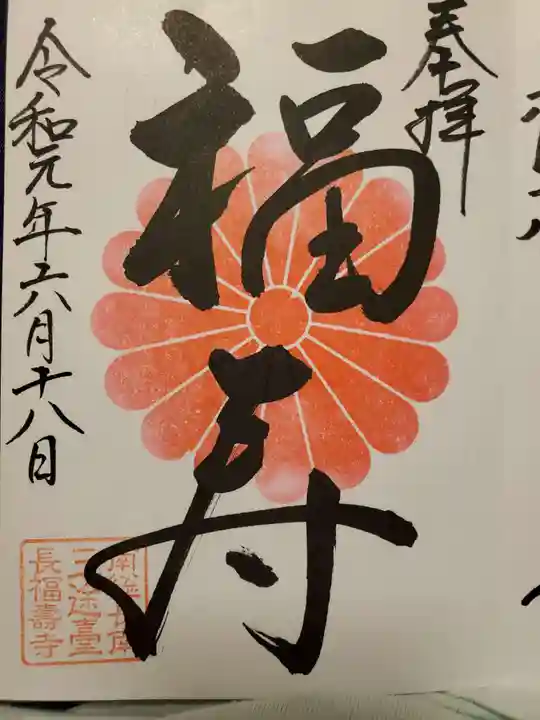 奉拝
福寿
令和元年六月十八日
三途臺
長福壽寺